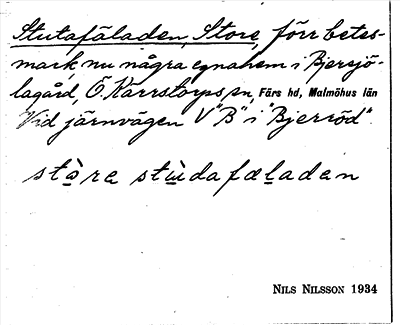 Stutafäladen, Store, förr betes-
mark, nu några egnahem i Bjersjö-
lagård, Ö. Kärrstorps sn, Färs hd, Malmöhus län
Vid järnvägen V "B" i "Bjerröd".
stòre stùdafæladen
NILS NILSSON 1934